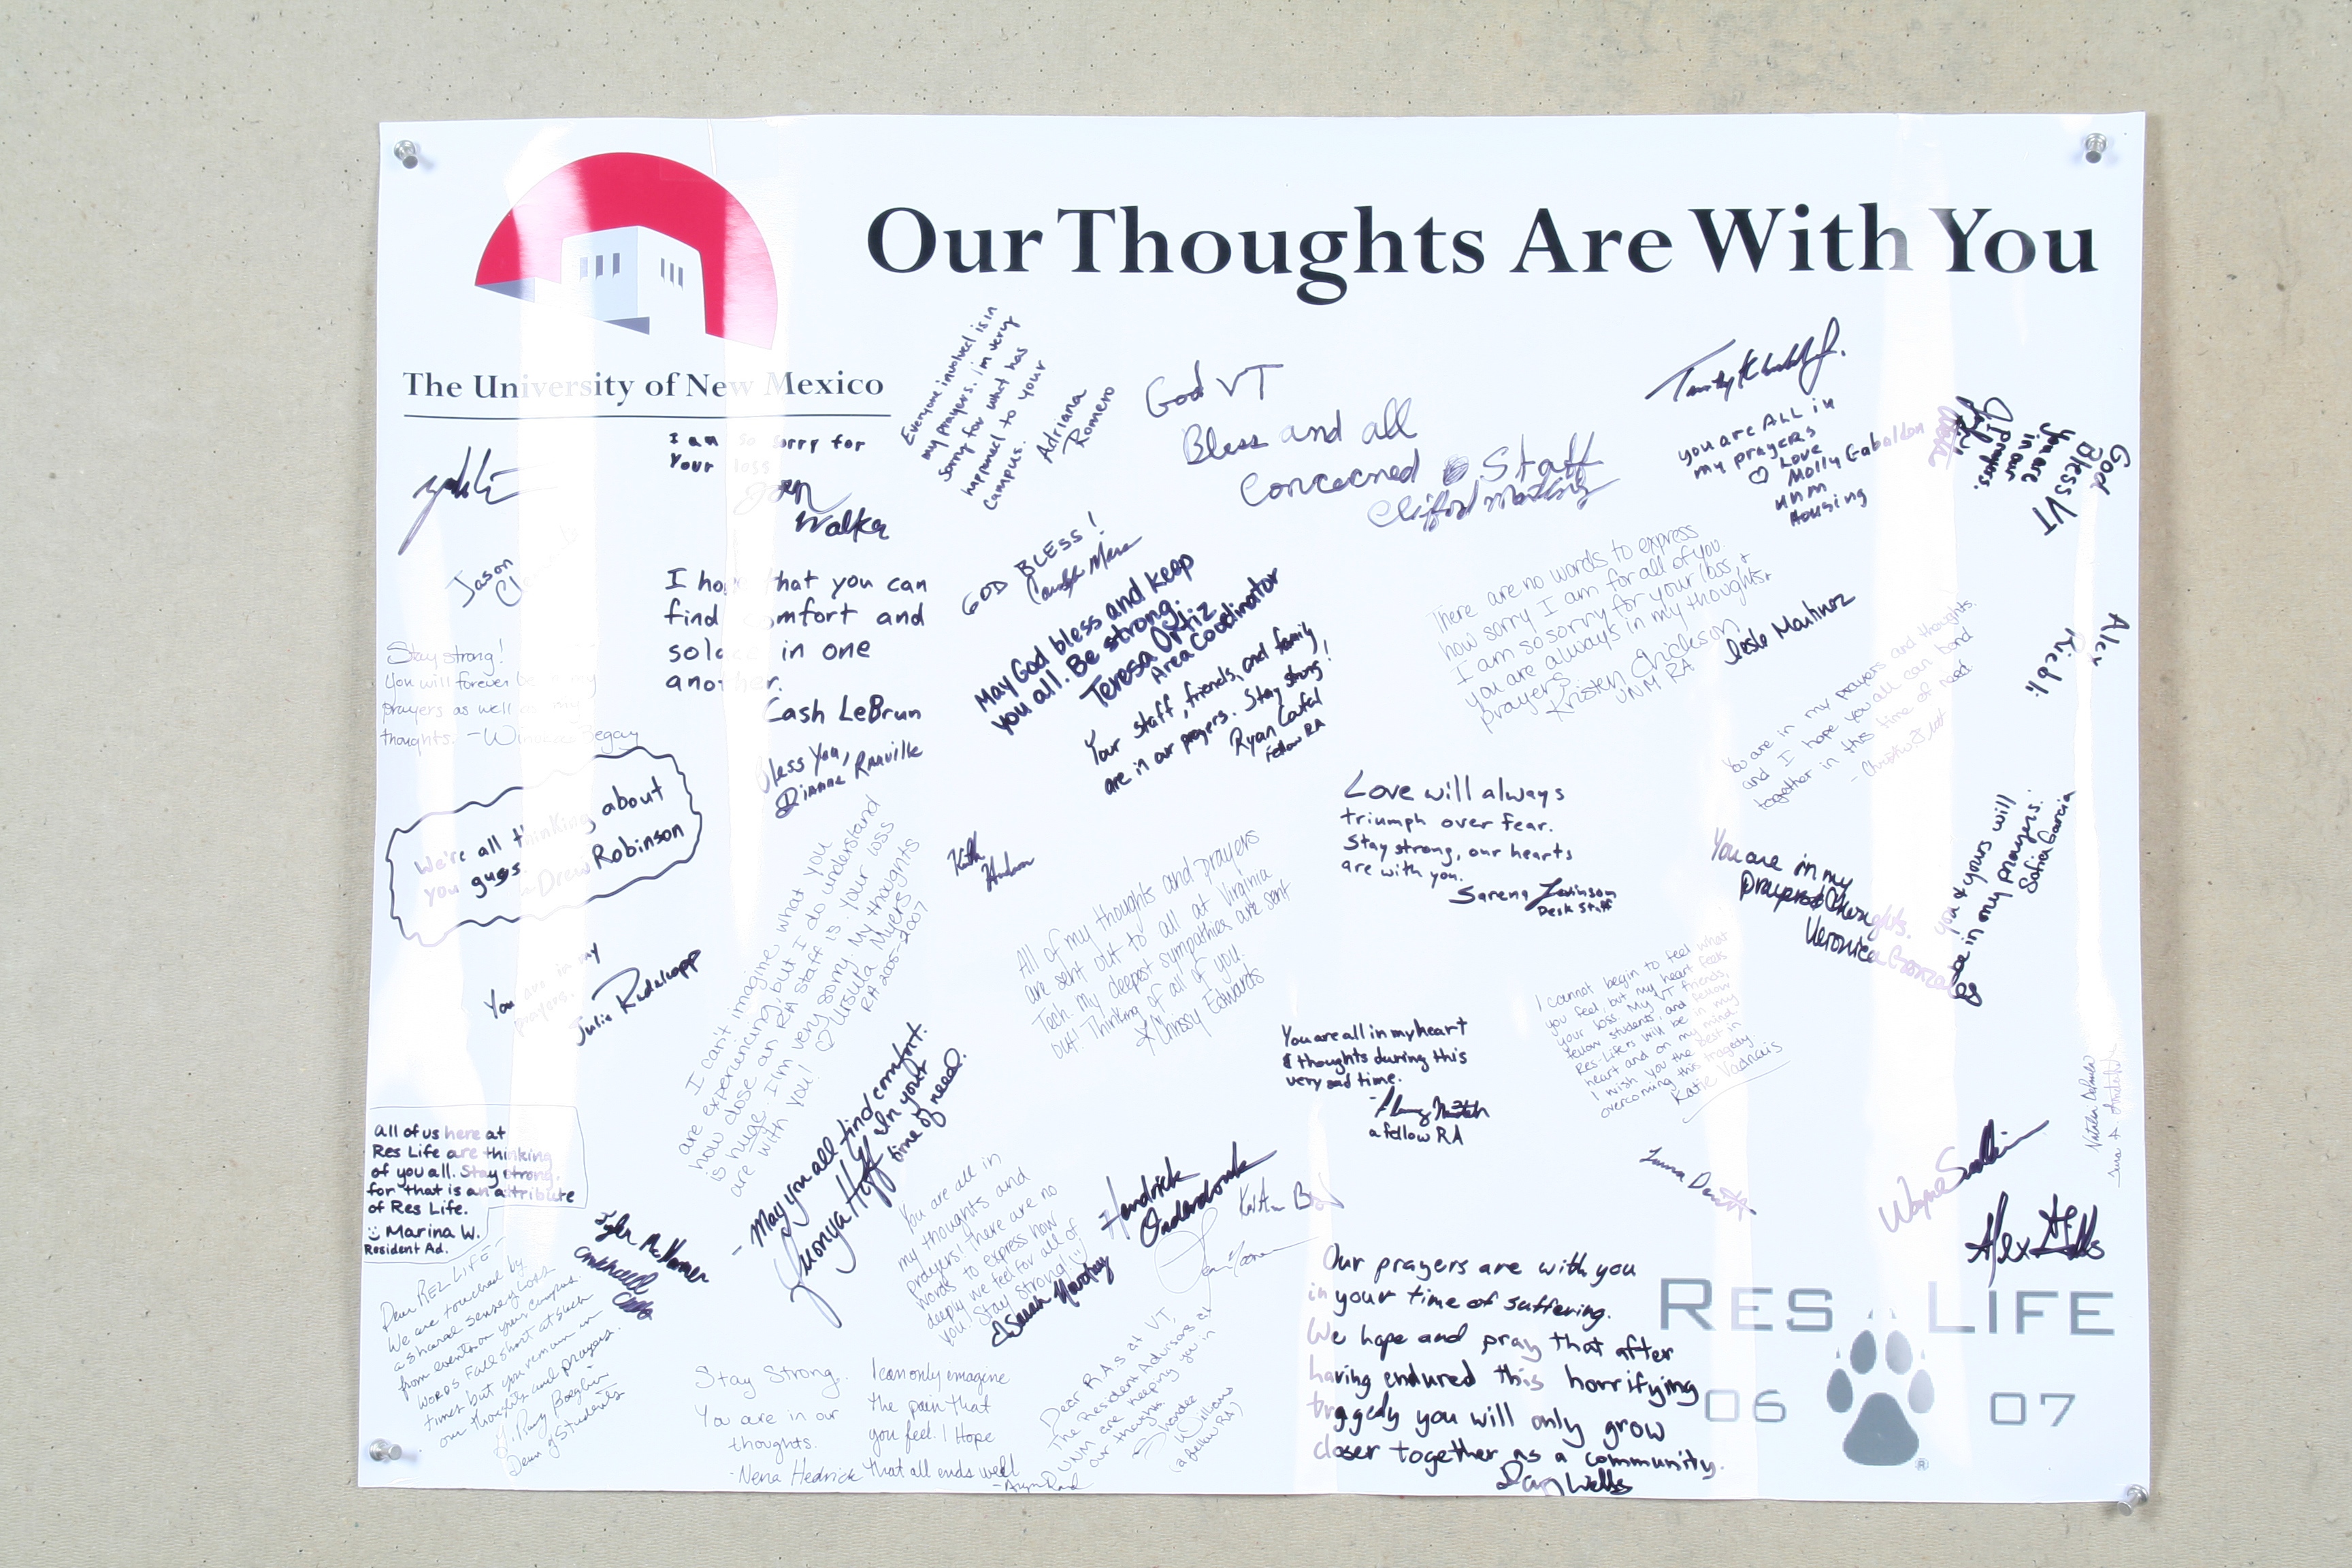 Our Thoughts Are With You
The University of New Mexico
Everyone involved is in
my prayers. I'm very
sorry for what has
happened to your
campus.
Adriana
Romero
God VT
Bless and all
concerned Staff
you are ALL in
my prayers
♡ Love
Molly Gabaldon
UNM
Housing
God
Bless VT
You are
in our
prayers.
Alex
I am so sorry for
your loss
Walker
Jason
I hope that you can
find comfort and
solace in one
another.
Cash LeBrun
Bless You,
Dianne Ranville
GOD BLESS!
May God bless and keep
you all. Be strong.
Teresa Ortiz
Area Coordinator
Your staff, friends, and family
are in our prayers. Stay strong!
Ryan
fellow RA
There are no words to express
how sorry I am for all of you.
I am so sorry for your loss, +
you are always in my thoughts +
prayers
Kristen Chickson
UNM RA
Leslie Martinez
You are in my prayers and thoughts.
and I hope you all can bond
together in this time of need
Stay strong!
You will forever be in my
prayers as well as my
thoughts. - Begay
We're all thinking about
you guys. - Drew Robinson
You are in my
prayers.
Julie
I can't imagine what you
are experiencing, but I do understand
how close an RA staff is. Your loss
is huge. I'm very sorry. My thoughts
are with you! ♡ Ursula Myers
RA 2005-2007
Love will always
triumph over fear.
Stay strong, our hearts
are with you.
Sarena Levinson
Desk Staff
All of my thoughts and prayers
are sent out to all at Virginia
Tech. My deepest sympathies are sent
out! Thinking of all of you.
Chrissy Edwards
You are in my
prayers & thoughts.
Veronica Gonzales
you & yours will
be in my prayers.
Sofia Garcia
I cannot begin to feel what
you feel, but my heart feels
your loss. My VT friends,
fellow students, and fellow
Res-Lifers will be in my
heart and on my mind.
I wish you the best in
overcoming this tragedy
Katie Vadnais
You are all in my heart
& thoughts during this
very sad time.
a fellow RA
All of us here at
Res Life are thinking
of you all. Stay strong,
for that is an attribute
of Res Life.
Marina W.
Resident Ad.
- May you all find comfort.
In your
time of need.
Hoff
You are all in
my thoughts and
prayers! There are no
words to express how
deeply we feel for all of
you! Stay strong! :)
Sarah
Hendrick
Laura
Wayne
Alex
Dear RES LIFE -
We are touched by
a shared sense of loss
from events on your campus.
Words fall short at such
times but you remain in
our thoughts and prayers.
Dean of Students
Stay Strong.
You are in our
thoughts.
- Nena Hedrick
I can only emagine
the pain that
you feel. I Hope
that all ends well
Dear RAs at VT,
The Resident Advisors at
UNM are keeping you in
our thoughts.
Williams
(a fellow RA)
Our prayers are with you
in your time of suffering.
We hope and pray that after
having endured this horrifying
tragedy you will only grow
closer together as a community.
RES LIFE
06 07